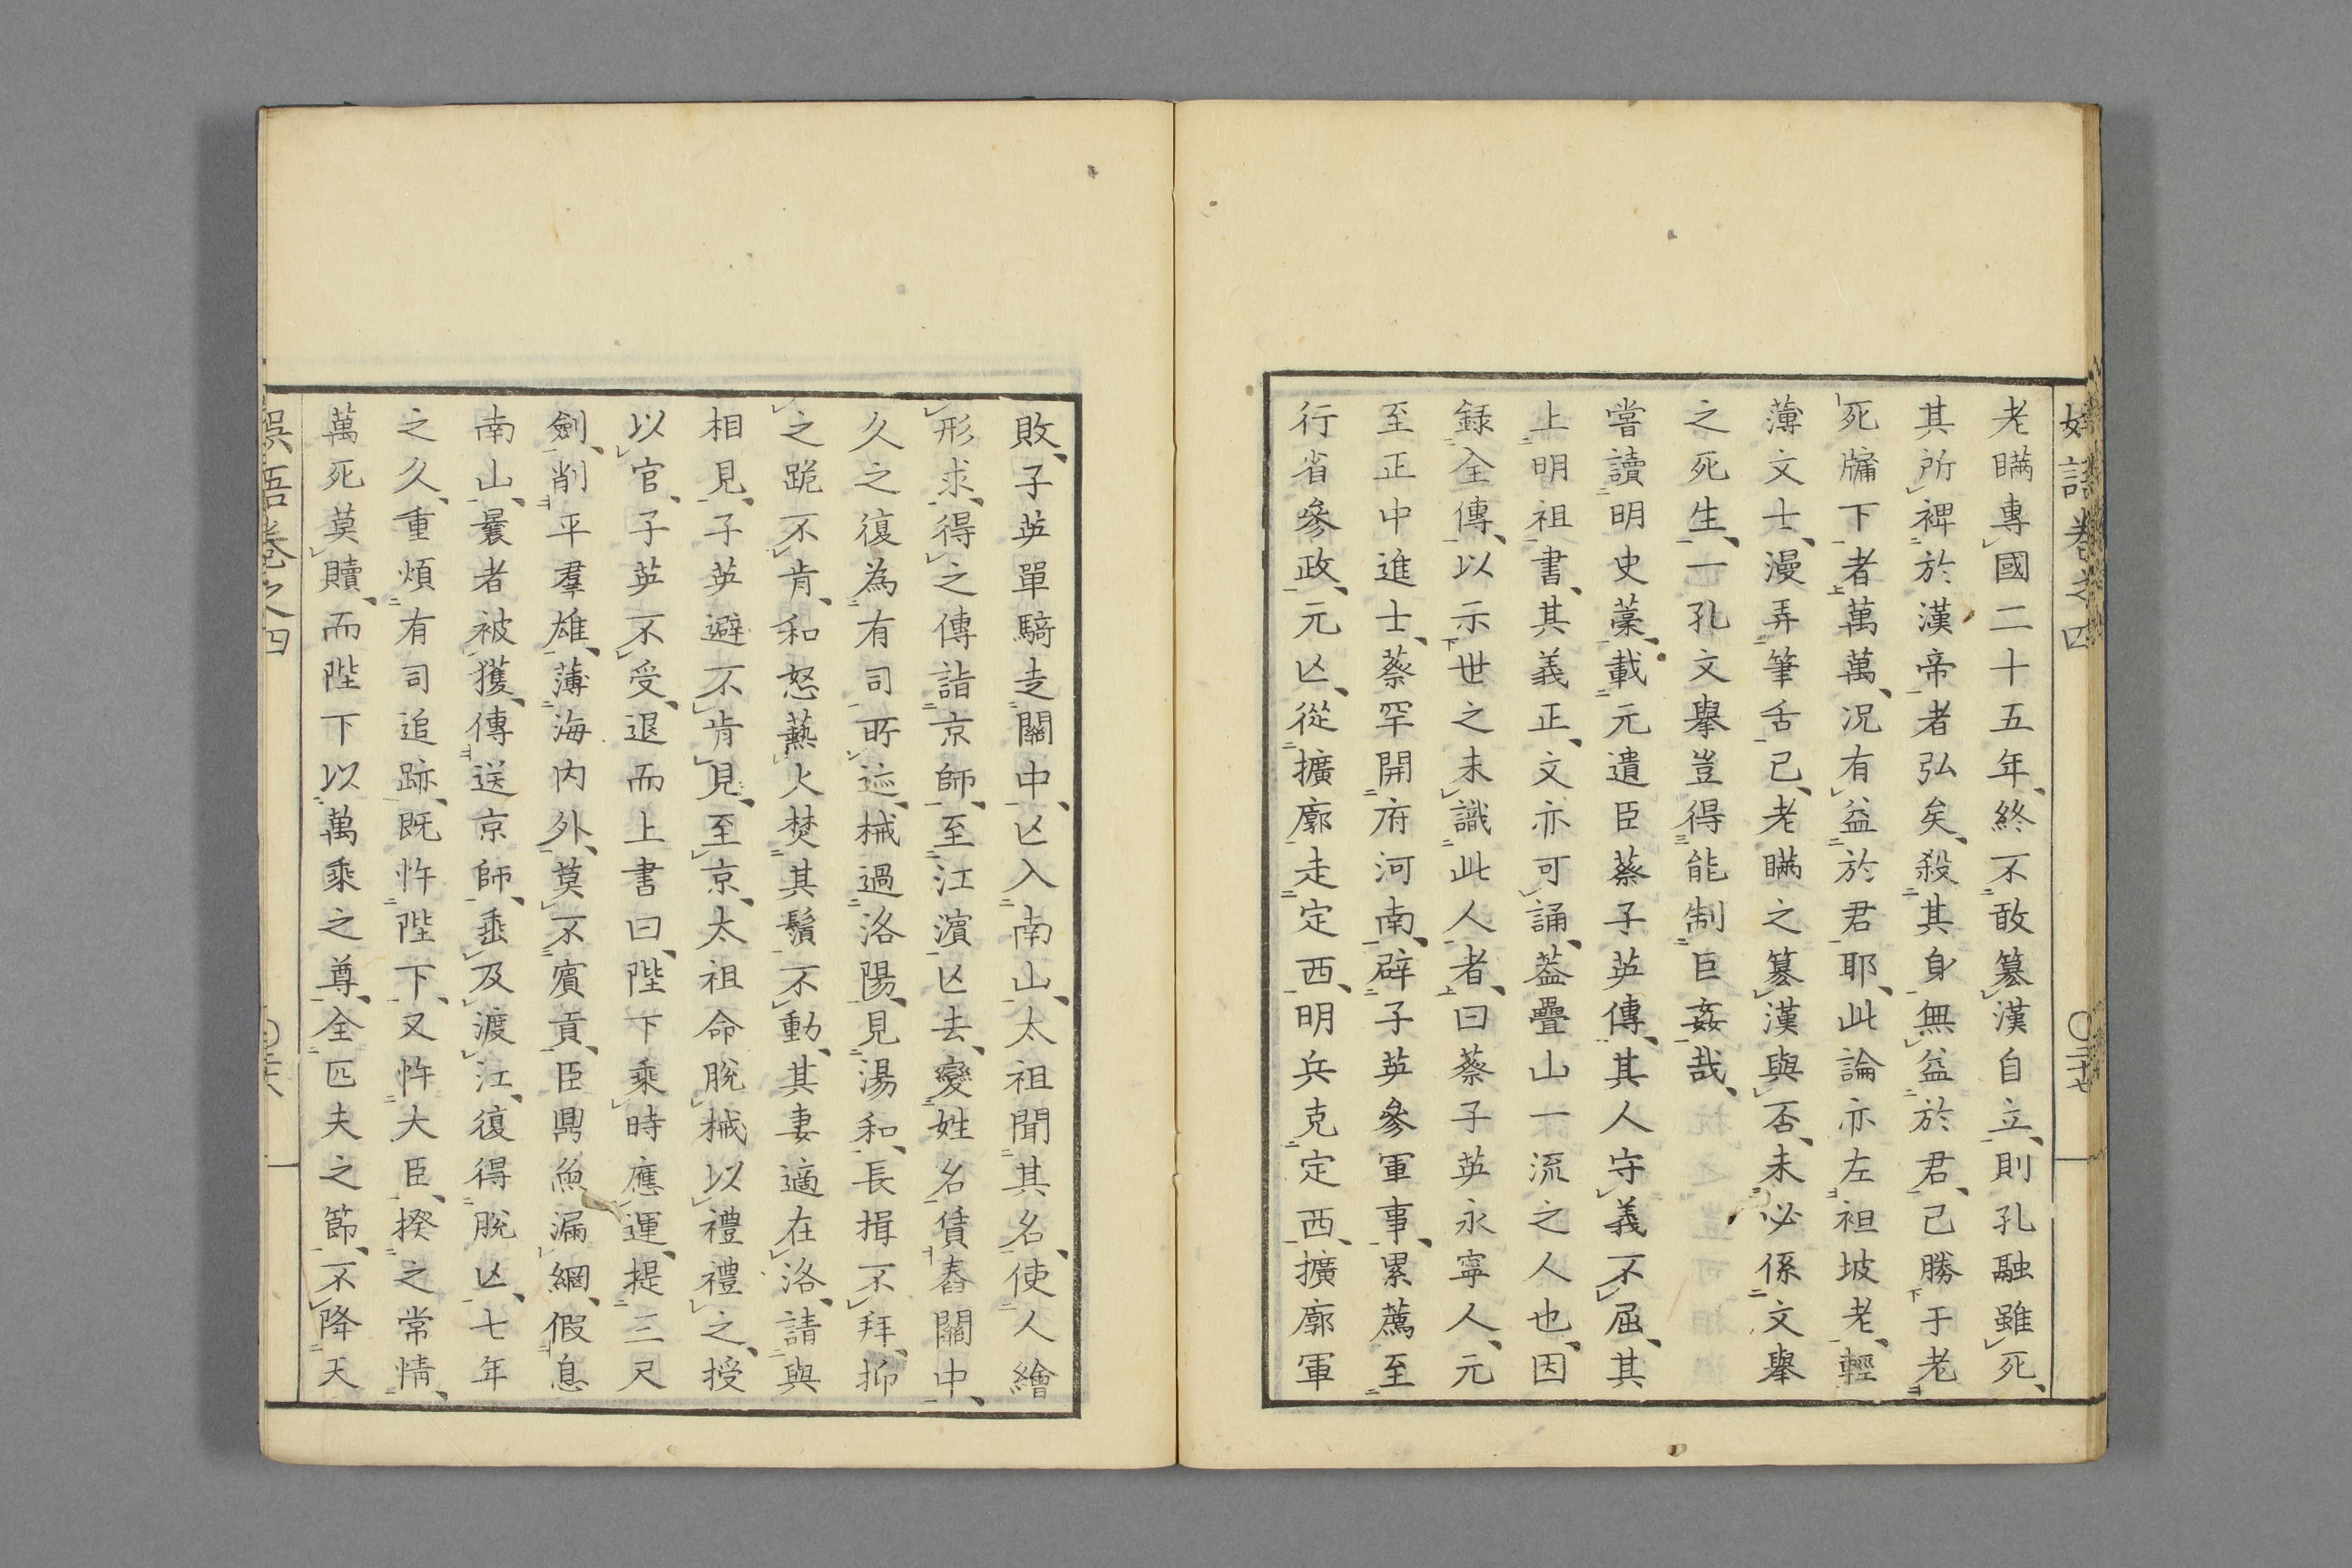 老瞞專國二十五年、終不敢簒漢自立、則孔融雖死、
其所裨於漢帝者弘矣、殺其身無益於君、己勝于老
死牖下者萬萬、況有益於君耶、此論亦左袒坡老、輕
薄文士、漫弄筆舌已、老瞞之簒漢與否、未必係文擧
之死生、一孔文擧豈得能制巨姦哉、
嘗讀明史藁、載元遺臣蔡子英傳、其人守義不屈、其
上明祖書、其義正、文亦可誦、蓋疊山一流之人也、因
録全傳、以示世之未識此人者、曰蔡子英永寧人、元
至正中進士、蔡罕開府河南、辟子英參軍事、累薦至
行省參政、元亾、從擴廓走定西、明兵克定西、擴廓軍
敗、子英單騎走關中、亾入南山、太祖聞其名、使人繪
形求、得之傳詣京師、至江濱亾去、變姓名賃舂關中、
久之復為有司所迹、械過洛陽、見湯和、長揖不拜、抑
之跪不肯、和怒爇火焚其鬚不動、其妻適在洛、請與
相見、子英避不肯見、至京、太祖命脫械以禮禮之、授
以官、子英不受、退而上書曰、陛下乘時應運、提三尺
劍、削平羣雄、薄海內外、莫不賓貢、臣鼎魚漏綱、假息
南山、曩者被獲、傳送京師、垂及渡江、復得脫亾、七年
之久、重煩有司追跡、既忤陛下、又忤大臣、揆之常情、
萬死莫贖、而陛下以萬乘之尊、全匹夫之節、不降天